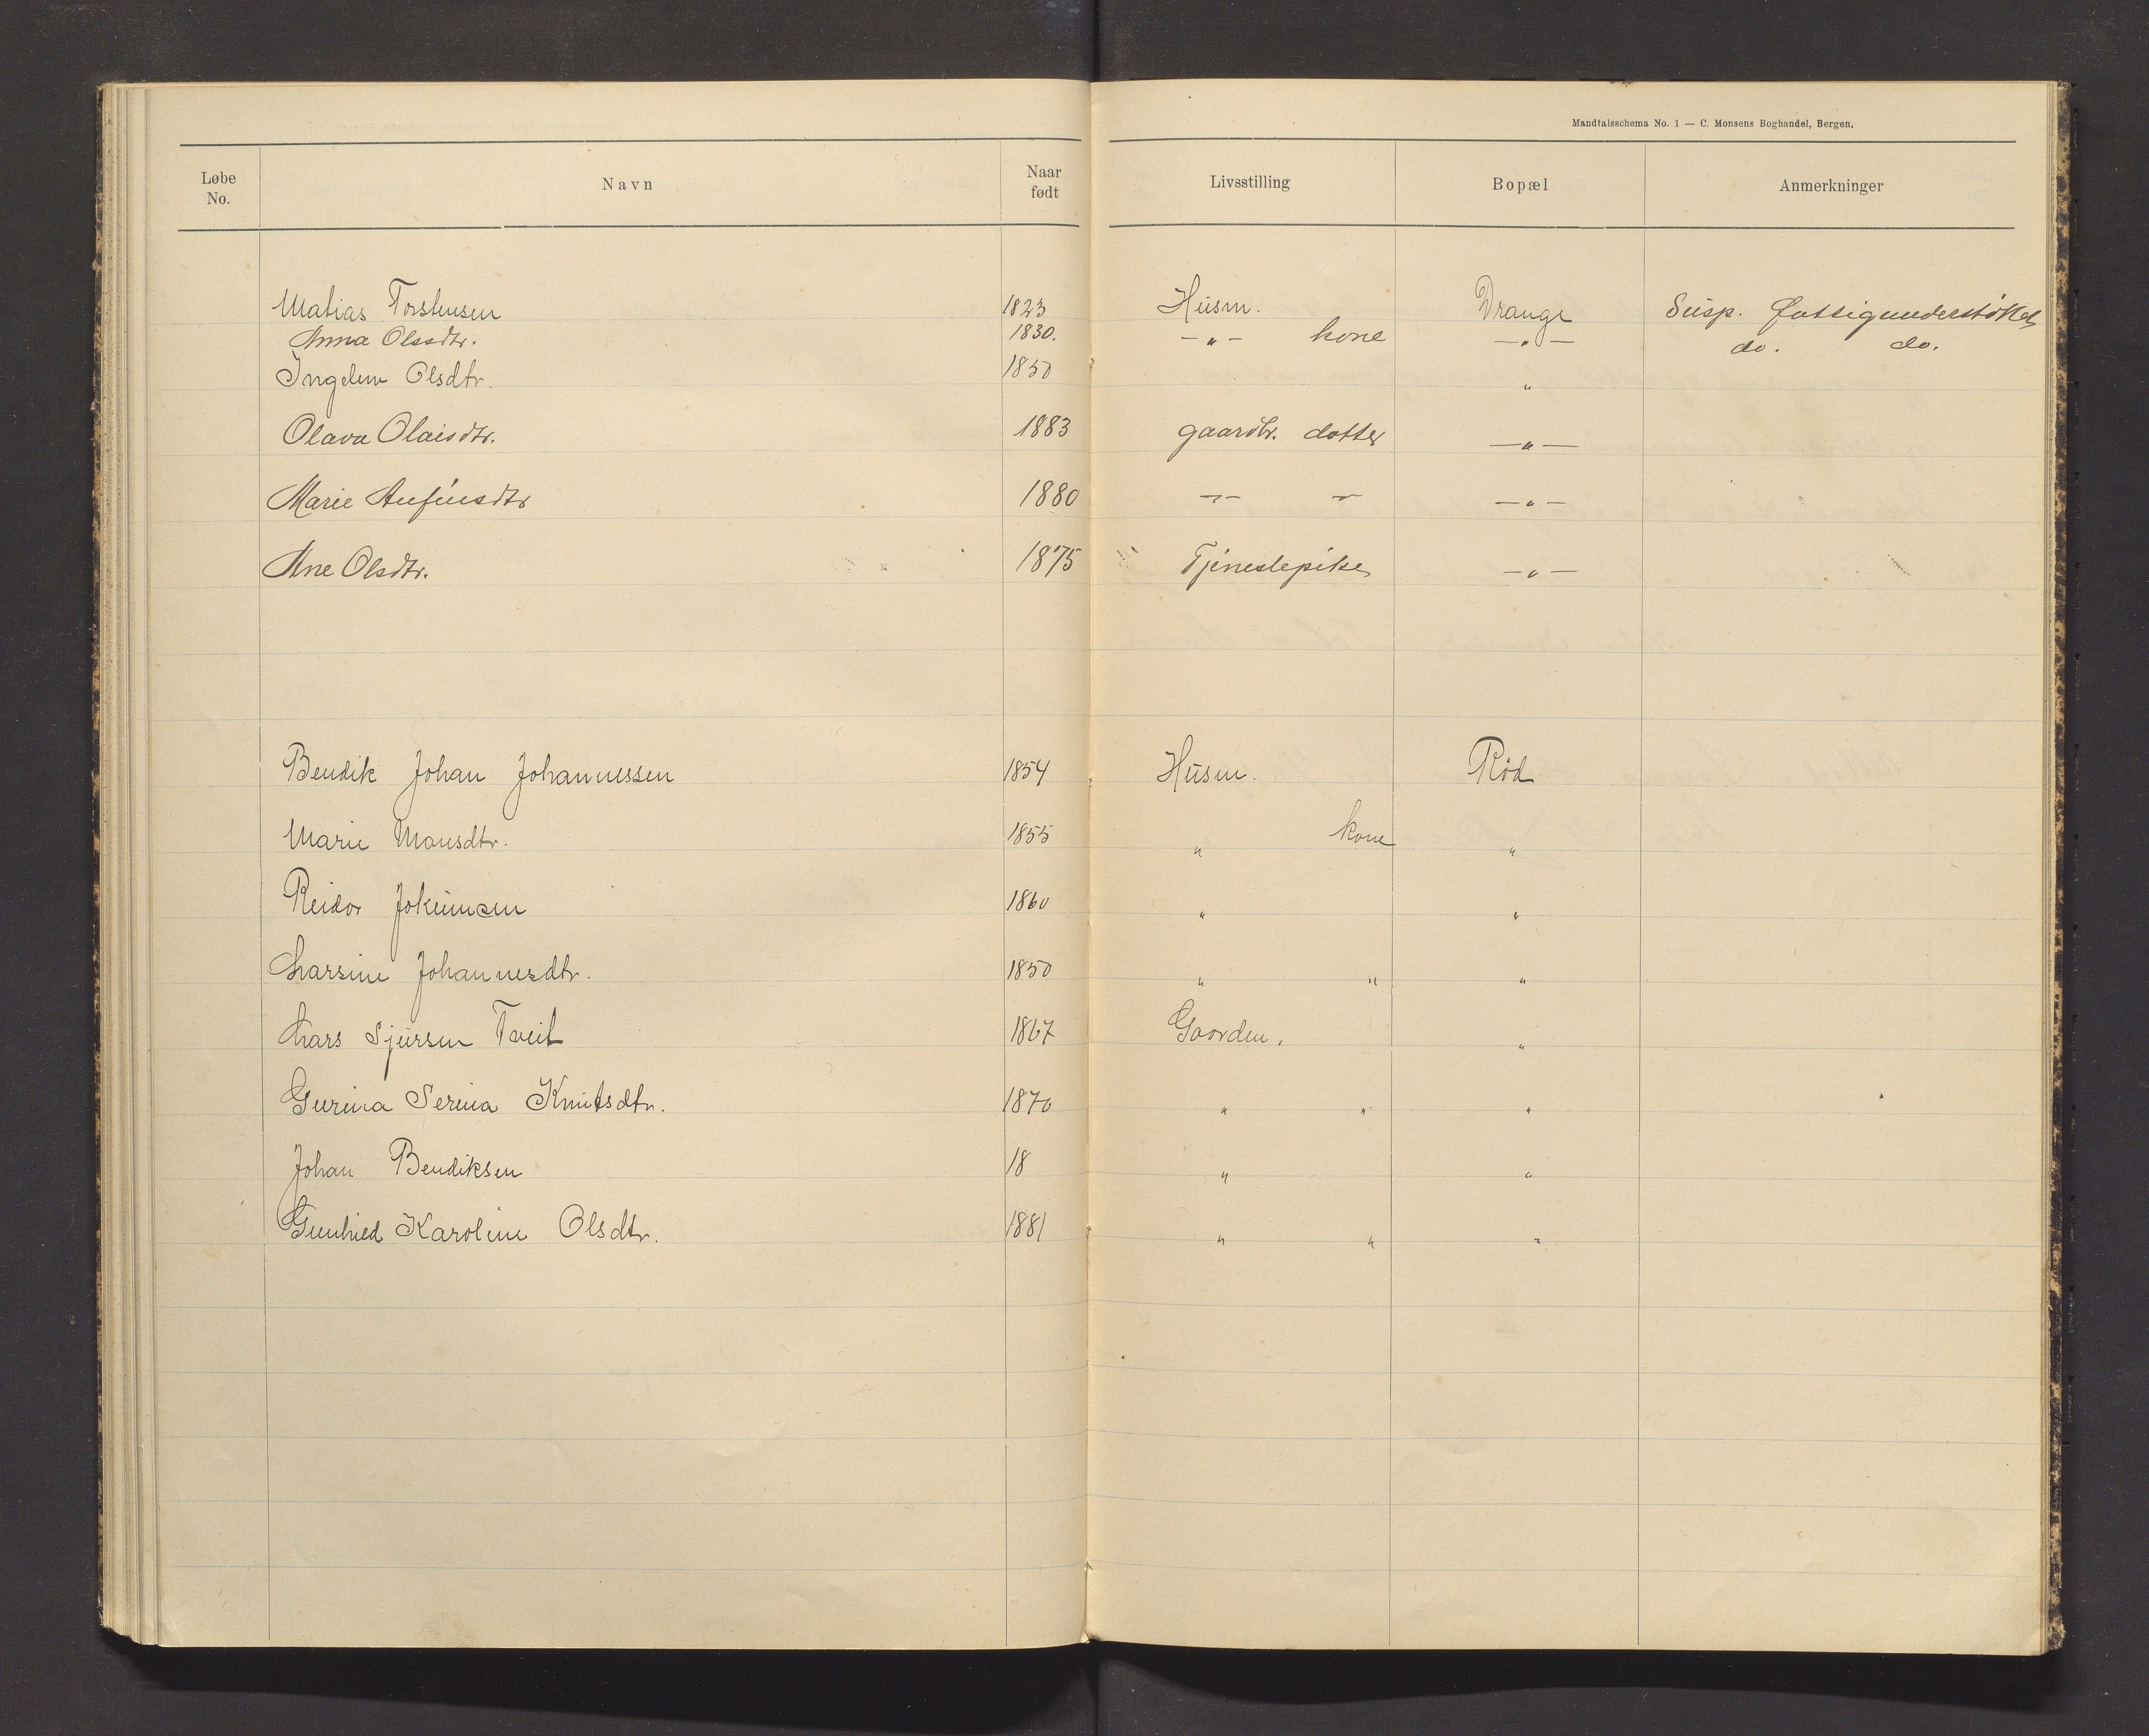 Mandtalsschema No. 1 — C. Monsens Boghandel, Bergen.
Løbe No. Navn Naar født Livsstilling Bopæl Anmerkninger
Matias Torstensen 1823 Husm. Drange Susp. fattigunderstøttet
Anna Olssdtr. 1830. —„— kone —„— do. do.
Ingelew Olsdtr. 1850 „
Olava Olaisdtr. 1883 gaardbr. datter —„—
Marie Anfinsdtr 1880 —„— „ —„—
Ane Olsdtr. 1875 Tjenestepike —„—
Bendik Johan Johannessen 1854 Husm. Röd
Marie Monsdtr. 1855 „ kone „
Reidar Jokumsen 1860 „ „
Larsine Johannesdtr. 1850 „ „ „
Lars Sjursen Tveit 1867 Gaarden. „
Gurina Serina Knutsdtr. 1870 „ „ „
Johan Bendiksen 18 „ „
Gunhild Karoline Olsdtr. 1881 „ „ „